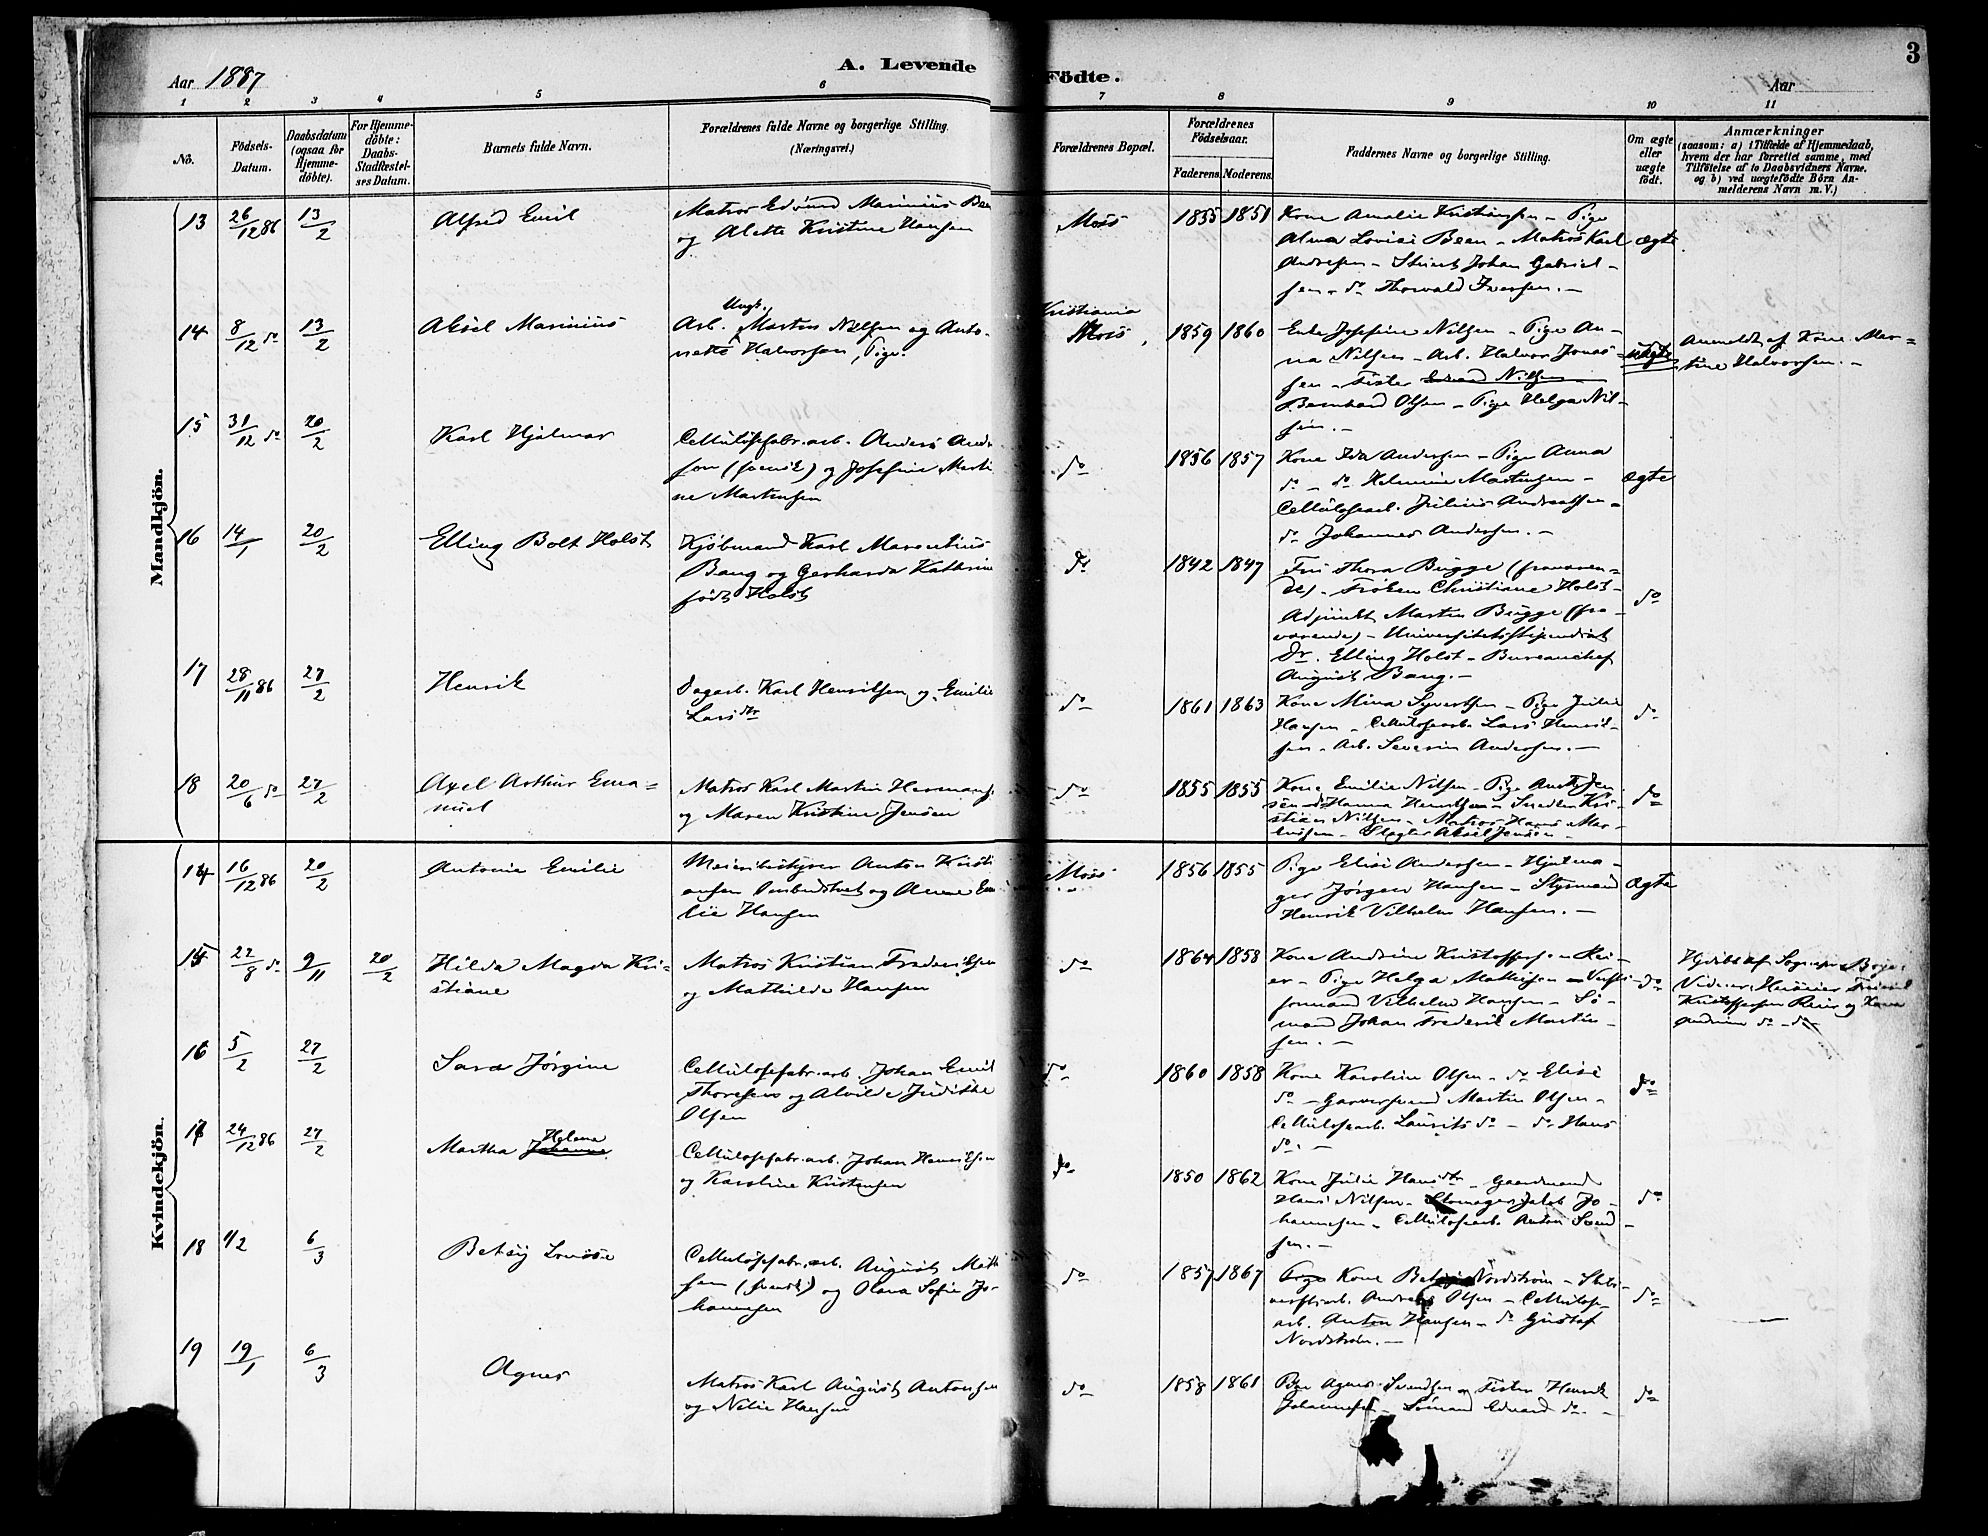 3
A. Levende Födte.
Aar 1887
Aar
1 2 3 4 5 6 7 8 9 10 11
Nô.
Födsels-Datum.
Daabsdatum (ogsaa for Hjemme-döbte).
For Hjemme-döbte: Daabs-Stadfæstel-ses Datum.
Barnets fulde Navn.
Forældrenes fulde Navne og borgerlige Stilling.
(Næringsvei.)
Forældrenes Bopæl.
Forældrenes Födselsaar.
Faderens. Moderens.
Faddernes Navne og borgerlige Stilling.
Om ægte eller uægte födt.
Anmærkninger
(saasom: a) i Tilfælde af Hjemmedaab,
hvem der har forrettet samme, med
Tilföielse af to Daabsvidners Navne,
og b) ved uægtefödte Börn An-
melderens Navn m. V.)
Mandkjön.
13 26/12 86 13/2 Alfred Emil
Matros Edvind Marinius Been
og Alette Kristine Hansen
Moss 1855 1851
Kone Amalie Kristiansen - Pige
Alma Lovise Been - Matros Karl
Andresen - Stuert Johan Gabriel-
sen - do Thorvald Iversen. -
ægte
14 8/12 do 13/2 Aksel Marinius
Ungk.
Arb. Martin Nilsen og Anto-
nette Halvorsen, Pige.
Kristiania
Moss 1859 1860
Enke Josefine Nilsen - Pige An-
na Nilsen - Arb. Halvor Jonas-
sen - Fisker
Bernhard Olsen - Pige Helga Nil-
sen. -
uægte
Anmeldt af Kone Mar-
tine Halvorsen. -
15 31/12 do 20/2 Karl Hjalmar
Cellulosefabr.arb. Anders Andr
son (svensk) og Josefine Marti
ne Martinsen
do 1856 1857
Kone Ida Andersen - Pige Anna
do - do Helmine Martinsen -
Cellulosearb. Julius Andreassen -
do Johannes Andersen. -
ægte
16 14/1 20/2 Elling Bolt Holst
Kjøbmand Karl Marentius
Bang og Gerharda Kathrine
født Holst
do 1842 1847
Fru Thora Bugge (fraværen-
de) - Frøken Christiane Holst -
Adjunkt Martin Bugge (fra-
værende) - Universitetsstipendiat
Dr. Elling Holst - Bureauchef
August Bang. -
do
17 28/11 86 27/2 Henrik
Dagarb. Karl Henriksen og Emilie
Larsdtr
do 1861 1863
Kone Mina Syvertsen - Pige Julie
Hansen - Cellulosearb. Lars Henrik-
sen - Arb. Severin Andersen. -
do
18 20/6 do 27/2 Axel Arthur Ema-
nuel
Matros Karl Martin Hermans
og Maren Kristine Jensen
do 1855 1855
Kone Emilie Nilsen - Pige Jen-
sen - do Hanna Henriksen - Snedker Kri-
stian Nilsen - Matros Hans Mar-
- Slagter Aksel Jensen -
do
Kvindekjön.
14 16/12 86 20/2 Antonie Emilie
Meieribestyrer Anton Kristi
ansen og Anne Em
lie Hansen
Moss 1856 1855
Pige Elise Andersen - Hjulma-
ger Jørgen Hansen - Styrmand
Henrik Vilhelm Hansen. -
ægte
15 22/8 do 9/11 20/2 Hilda Magda Kri-
stiane
Matros Kristian Frederiksen
og Mathilde Hansen
do 1864 1858
Kone Andrine Kristoffersen Rei-
er - Pige Helga Mathisen -
formand Vilhelm Hansen - Sø-
mand Johan Frederik Martin-
sen. -
do
Hjdøbt af Sognepr.
Kristoffersen Reier og Kone
Andrine do - do
16 5/2 27/2 Sara Jørgine
Cellulosefabr.arb. Johan Emil
Thoresen og Alvilde Judithe
Olsen
do 1860 1858
Kone Karoline Olsen - do Elise
do - Garversvend Martin Olsen -
Cellulosearb. Laurits do - do Hans
do. -
do
17 24/12 86 27/2 Martha Johanne Helene
Cellulosefabr.arb. Johan Henriksen
og Karoline Kristensen
do 1850 1862
Kone Julie Hansdtr - Gaardmand
Hans Nilsen - Skomager Jakob Jo-
hannesen - Cellulosearb. Anton Svend-
sen. -
do
18 1/2 6/3 Betsy Lovise
Cellulosefabr.arb. August Matt
son (svensk) og Olava Sofie Jo-
hannesen
do 1857 1867
Pige Kone Betsy Nordstrøm - Skibs-
verftsarb. Andreas Olsen - Cellulose-
arb. Anton Hansen - do Gustaf
Nordstrøm. -
do
19 19/1 6/3 Agnes
Matros Karl August Antonsen
og Nelie Hansen
do 1858 1861
Pige Agnes Svendsen - Fisker Henrik
Johannesen - Sømand Edvard do. -
do